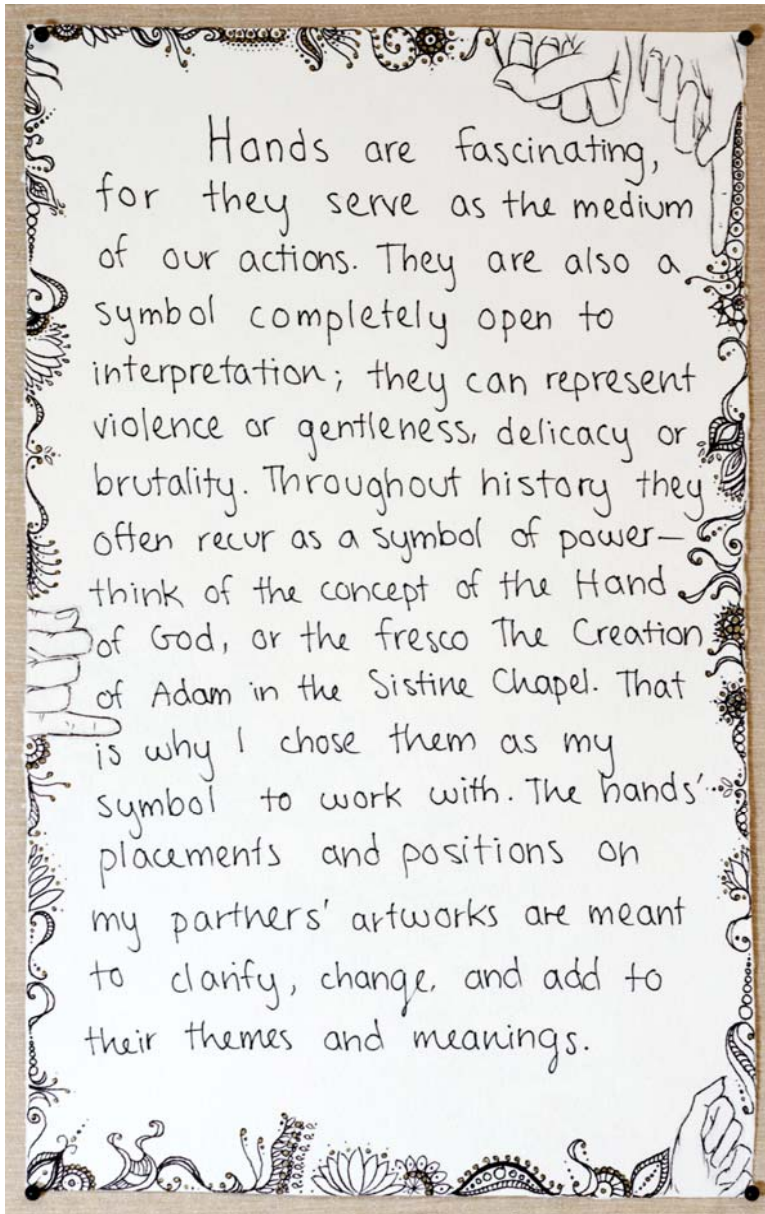 Hands are fascinating,
for they serve as the medium
of our actions. They are also a
symbol completely open to
interpretation; they can represent
violence or gentleness, delicacy or
brutality. Throughout history they
often recur as a symbol of power—
think of the concept of the Hand
of God, or the fresco The Creation
of Adam in the Sistine Chapel. That
is why I chose them as my
symbol to work with. The hands'
placements and positions on
my partners' artworks are meant
to clarify, change, and add to
their themes and meanings.